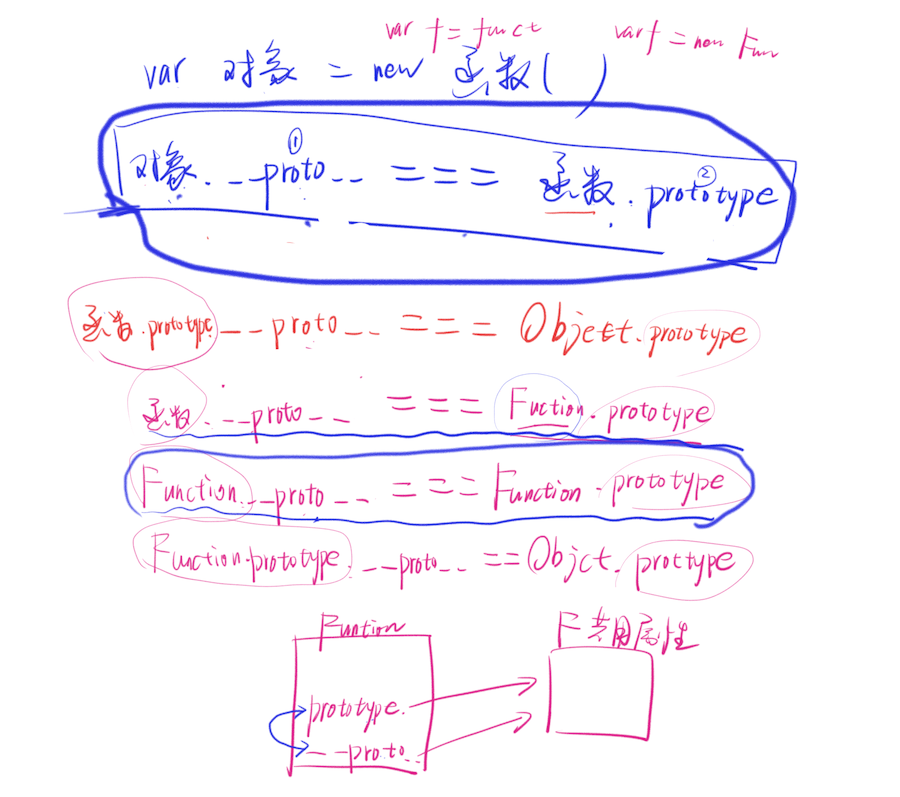 var f = funct var f = new Fun
var 对象 = new 函数( )
① ②
对象.__proto__ === 函数.prototype
函数.prototype.__proto__ === Object.prototype
函数.__proto__ === Fuction.prototype
Function.__proto__ === Function.prototype
Function.prototype.__proto__ == Objct.prottype
Funtion F共用属性
prototype.
__proto__